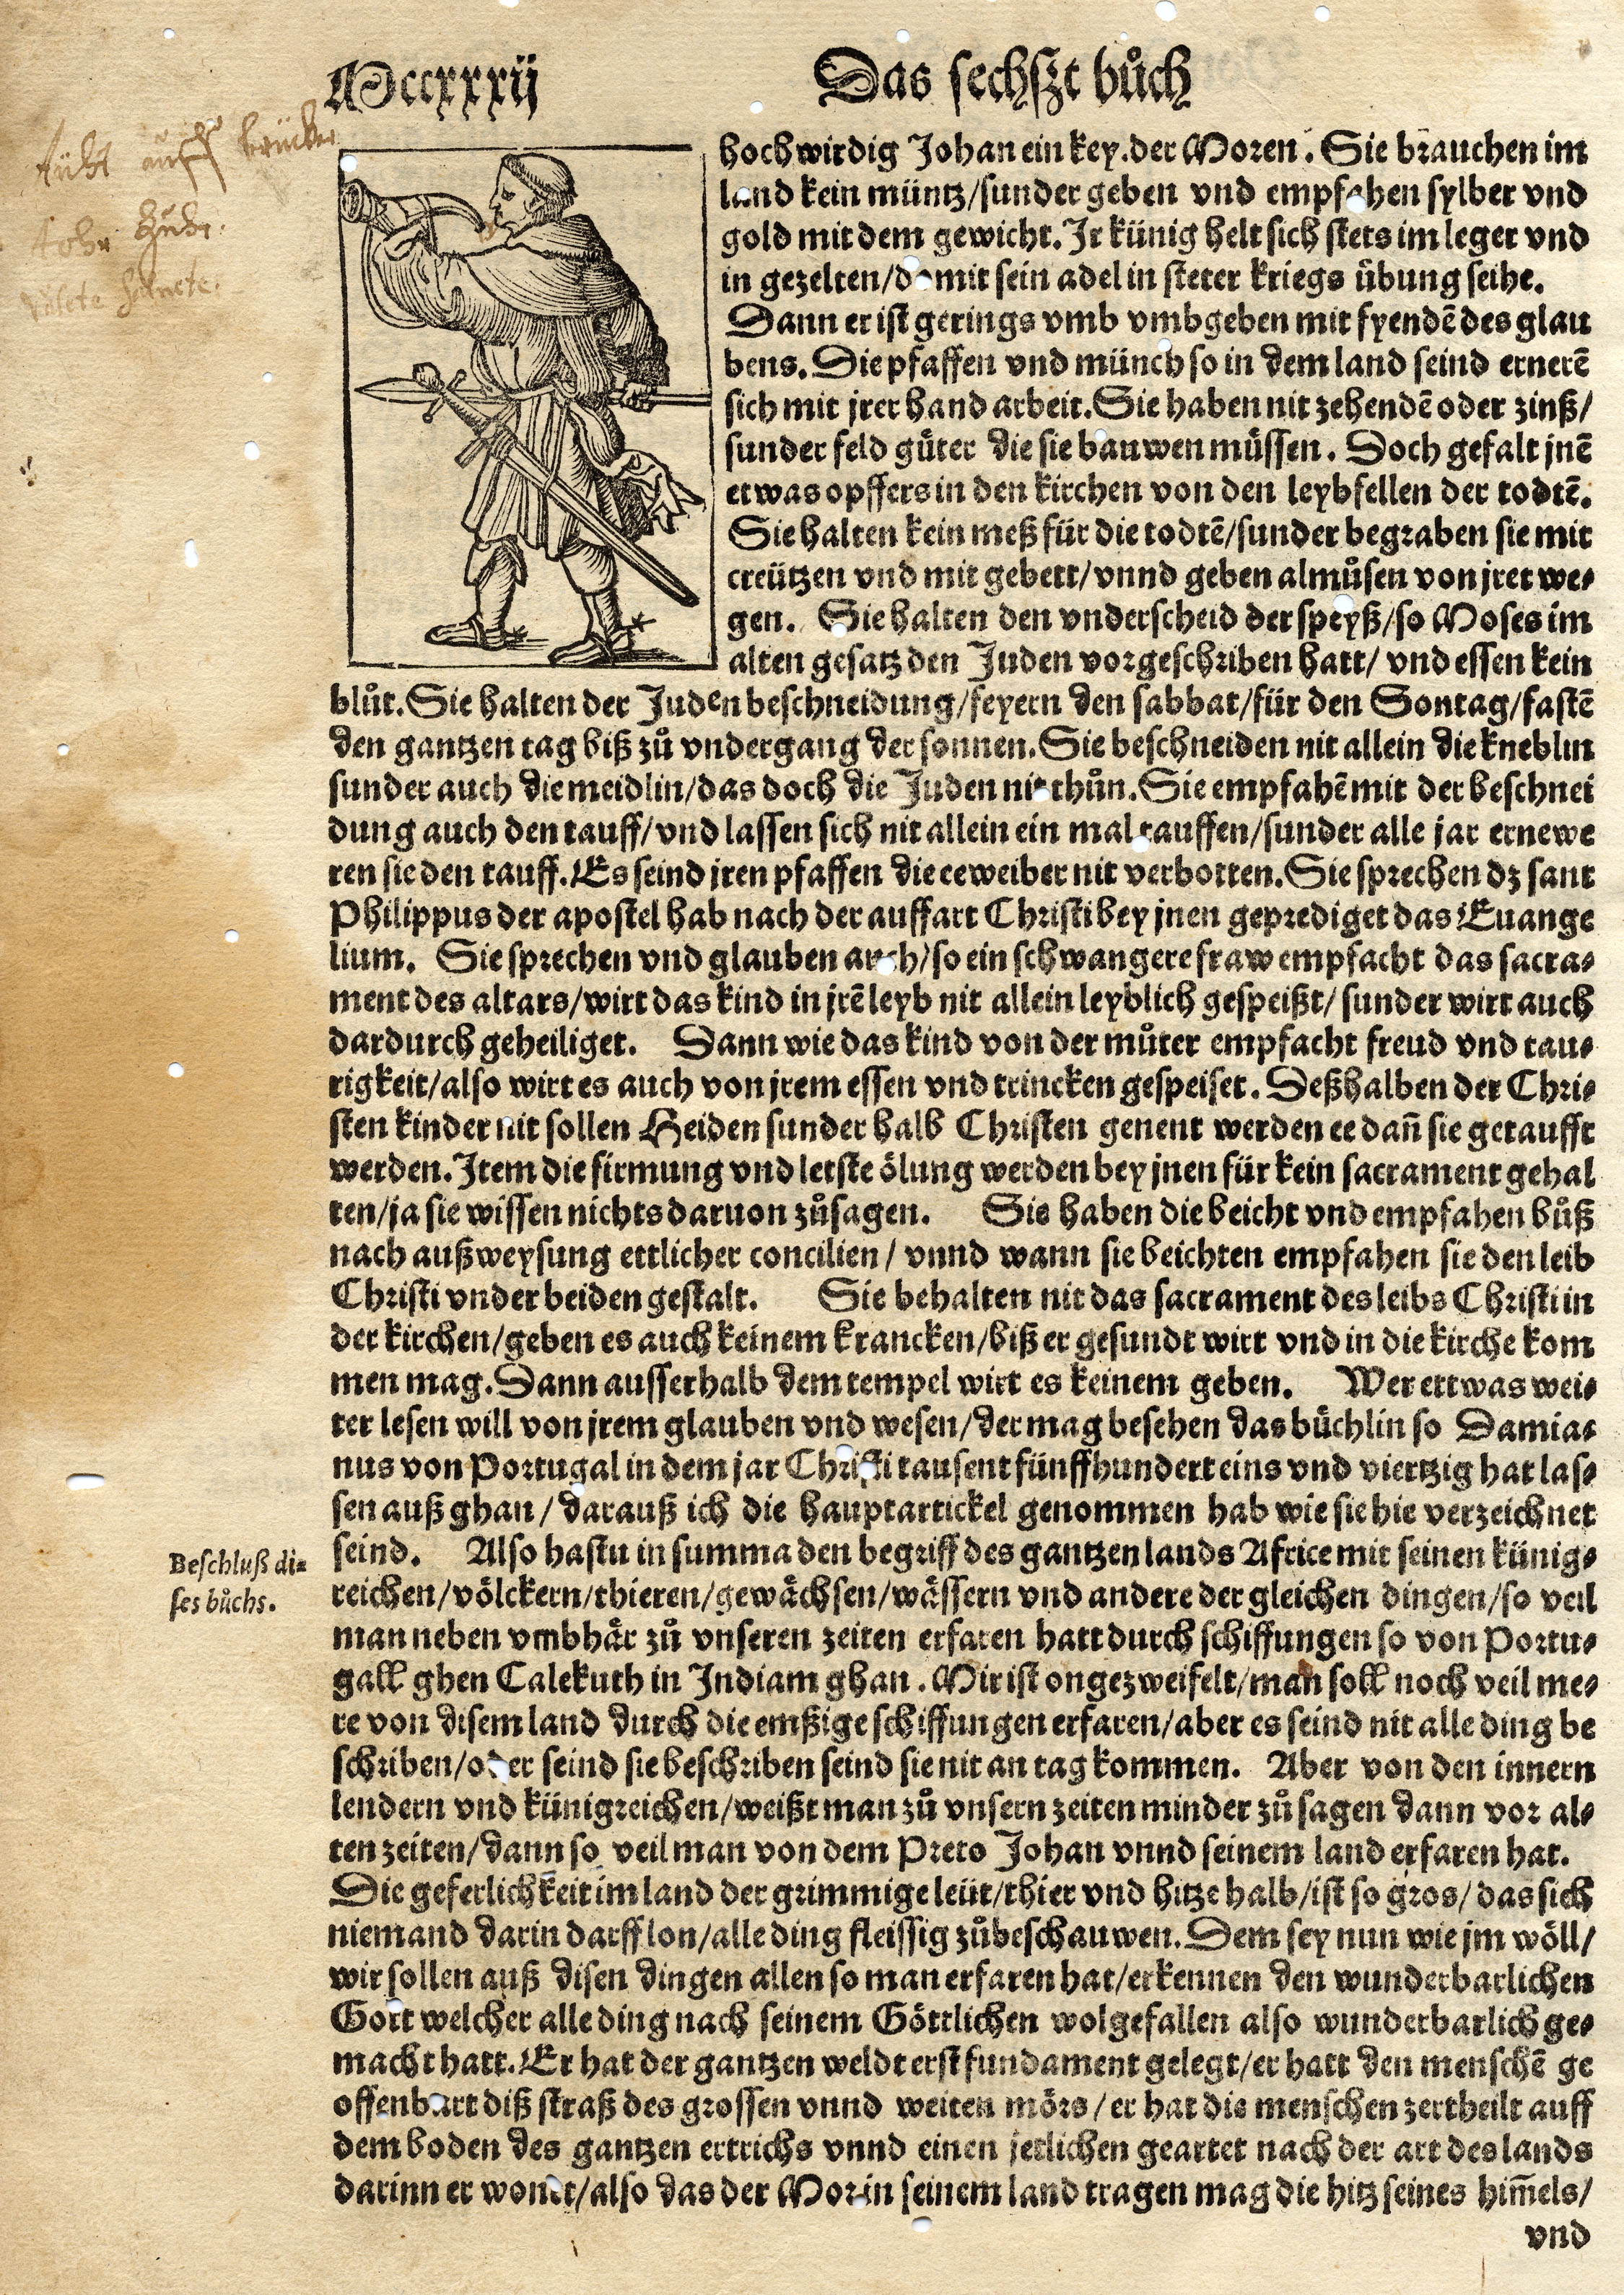 Mccxxxij
Das sechßt bůch
hochwirdig Johan ein key. der Moren. Sie brauchen im
land kein müntz/sunder geben vnd empfahen sylber vnd
gold mit dem gewicht. Ir künig helt sich stets im leger vnd
in gezelten/damit sein adel in steter kriegs übung seihe.
Dann er ist gerings vmb vmbgeben mit fyendē des glau
bens. Die pfaffen vnd münch so in dem land seind ernerē
sich mit jrer hand arbeit. Sie haben nit zehendē oder zinß/
sunder feld gůter die sie bauwen müssen. Doch gefalt jnē
etwas opffers in den kirchen von den leybfellen der todtē.
Sie halten kein meß für die todtē/sunder begraben sie mit
creützen vnd mit gebett/vnnd geben almůsen von jret we-
gen. Sie halten den vnderscheid der speyß/so Moses im
alten gesatz den Juden vorgeschriben hatt/ vnd essen kein
blůt. Sie halten der Juden beschneidung/feyern den sabbat/für den Sontag/fastē
den gantzen tag biß zů vndergang der sonnen. Sie beschneiden nit allein die kneblin
sunder auch die meidlin/das doch die Juden nit thůn. Sie empfahē mit der beschnei
dung auch den tauff/vnd lassen sich nit allein ein mal tauffen/sunder alle jar ernewe
ren sie den tauff. Es seind jren pfaffen die eeweiber nit verbotten. Sie sprechen dz sant
Philippus der apostel hab nach der auffart Christi bey jnen geprediget das Euange
lium. Sie sprechen vnd glauben auch/so ein schwangere fraw empfacht das sacra-
ment des altars/wirt das kind in jrē leyb nit allein leyblich gespeißt/ sunder wirt auch
dardurch geheiliget. Dann wie das kind von der můter empfacht freud vnd tau-
rigkeit/also wirt es auch von jrem essen vnd trincken gespeiset. Deßhalben der Chri-
sten kinder nit sollen Heiden sunder halb Christen genent werden ee dañ sie getaufft
werden. Item die firmung vnd letste ölung werden bey jnen für kein sacrament gehal
ten/ja sie wissen nichts daruon zůsagen. Sie haben die beicht vnd empfahen bůß
nach außweysung ettlicher concilien/ vnnd wann sie beichten empfahen sie den leib
Christi vnder beiden gestalt. Sie behalten nit das sacrament des leibs Christi in
der kirchen/geben es auch keinem krancken/biß er gesundt wirt vnd in die kirche kom
men mag. Dann ausserhalb dem tempel wirt es keinem geben. Wer ettwas wei-
ter lesen will von jrem glauben vnd wesen/der mag besehen das büchlin so Damia-
nus von Portugal in dem jar Christi tausent fünffhundert eins vnd viertzig hat las-
sen auß ghan/ darauß ich die hauptartickel genommen hab wie sie hie verzeichnet
seind. Also hastu in summa den begriff des gantzen lands Africe mit seinen künig-
Beschluß di-
ses bůchs.
reichen/völckern/thieren/gewächsen/wässern vnd andere der gleichen dingen/so veil
man neben vmbhär zů vnseren zeiten erfaren hatt durch schiffungen so von Portu-
gall ghen Calekuth in Indiam ghan. Mir ist ongezweifelt/man soll noch veil me-
re von disem land durch die emßige schiffungen erfaren/aber es seind nit alle ding be
schriben/oder seind sie beschriben seind sie nit an tag kommen. Aber von den innern
lendern vnd künigreichen/weißt man zů vnsern zeiten minder zů sagen dann vor al-
ten zeiten/dann so veil man von dem Preto Johan vnnd seinem land erfaren hat.
Die geferlichkeit im land der grimmige leüt/thier vnd hitze halb/ist so gros/das sich
niemand darin darff lon/alle ding fleissig zůbeschauwen. Dem sey nun wie jm wöll/
wir sollen auß disen dingen allen so man erfaren hat/erkennen den wunderbarlichen
Gott welcher alle ding nach seinem Göttlichen wolgefallen also wunderbarlich ge-
macht hatt. Er hat der gantzen weldt erst fundament gelegt/er hatt den menschē ge
offenbart diß straß des grossen vnnd weiten mörs/er hat die menschen zertheilt auff
dem boden des gantzen ertrichs vnnd einen jetlichen geartet nach der art des lands
darinn er wonet/also das der Mor in seinem land tragen mag die hitz seines him̃els/
vnd